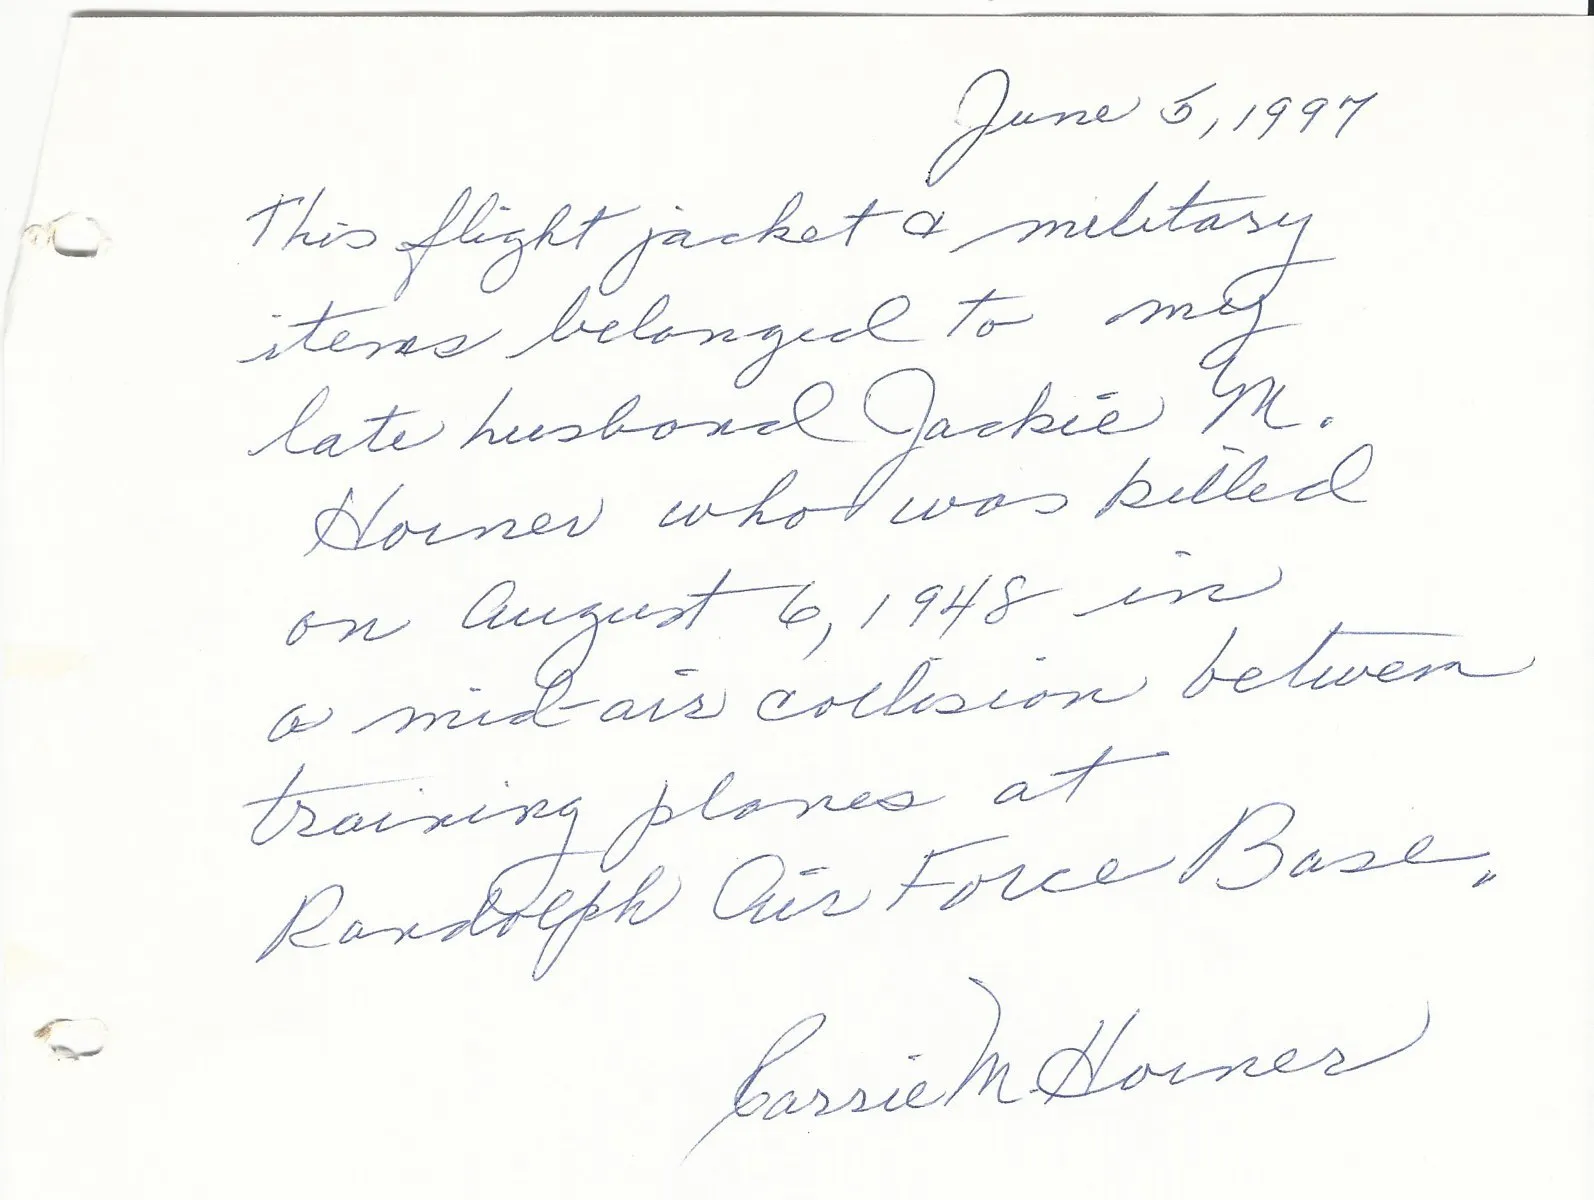 June 5, 1997
This flight jacket & military
items belonged to my
late husband Jackie M.
Horner who was killed
on August 6, 1948 in
a mid-air collision between
training planes at
Randolph Air Force Base.
Carrie M. Horner